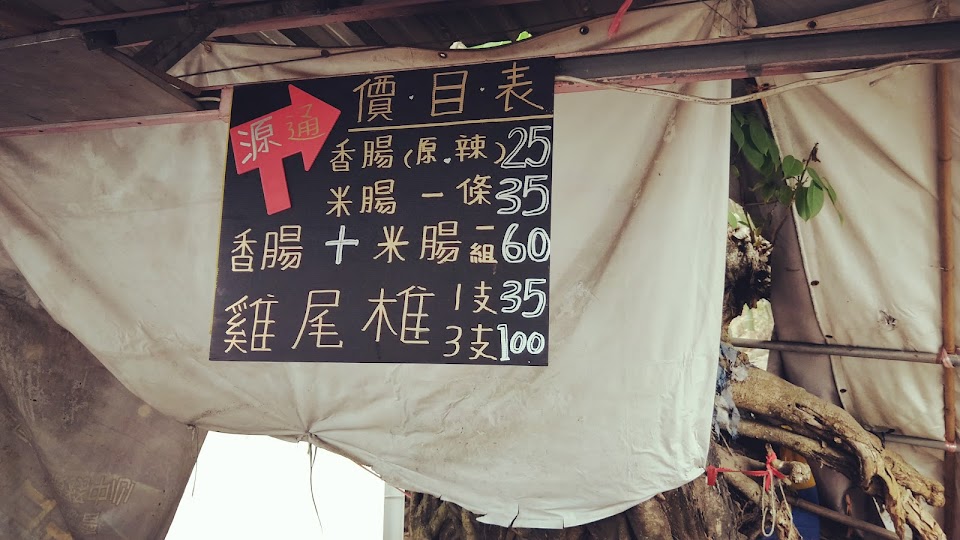 價.目.表
源通
香腸(原.辣)25
米腸一條35
香腸+米腸一組60
雞尾椎1支35
3支100